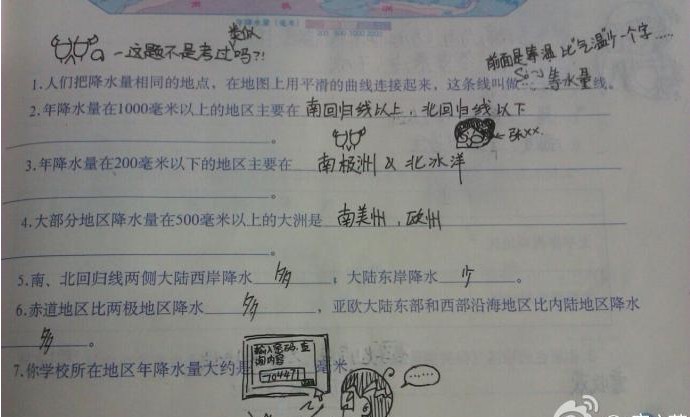 年降水量(毫米)
一这题不是考过类似吗?!
前面是等温 比"气温"少一个字……
1.人们把降水量相同的地点，在地图上用平滑的曲线连接起来，这条线叫做 等水量 线。
2.年降水量在1000毫米以上的地区主要在 南回归线以上，北回归线以下
。
←孙xx.
3.年降水量在200毫米以下的地区主要在 南极洲 & 北冰洋
。
4.大部分地区降水量在500毫米以上的大洲是 南美州，欧州
。
5.南、北回归线两侧大陆西岸降水 多 ，大陆东岸降水 少 。
6.赤道地区比两极地区降水 多 ，亚欧大陆东部和西部沿海地区比内陆地区降水
多 。
输入密码，查
询内容
704471
7.你学校所在地区年降水量大约是 毫米
……